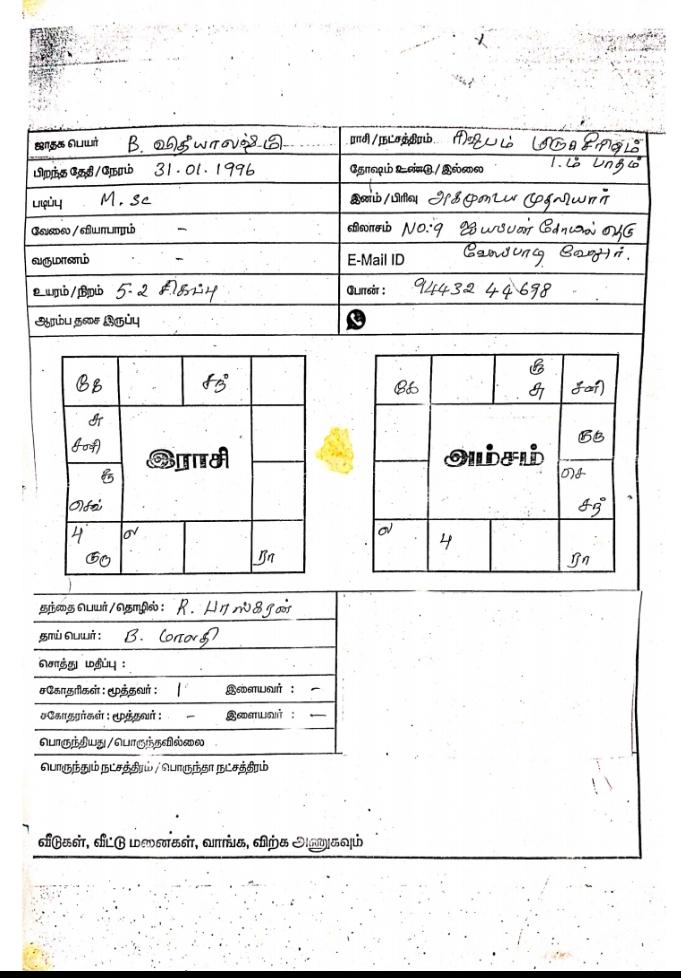 ஜாதக பெயர் B. வித்யாலஷ்மி
ராசி/நட்சத்திரம் ரிஷபம் மிருகசீரிஷம்
1.ம் பாதம்
பிறந்த தேதி/நேரம் 31.01.1996
தோஷம் உண்டு/இல்லை
படிப்பு M.Sc
இனம்/பிரிவு அகமுடைய முதலியார்
வேலை/வியாபாரம் -
விலாசம் NO:9 ஐயப்பன் கோயில் தெரு
வருமானம் -
E-Mail ID வேலப்பாடி வேலூர்.
உயரம்/நிறம் 5-2 சிகப்பு
போன்: 94432 44698
ஆரம்ப தசை இருப்பு
கே சந்
சு
சனி
சூ
செவ்
இராசி
4
குரு
ல
ரா
கே
சூ
சு
சனி
குரு
செ
சந்
அம்சம்
ல
4
ரா
தந்தை பெயர்/தொழில்: R. பாஸ்கரன்
தாய் பெயர்: B. மாலதி
சொத்து மதிப்பு :
சகோதரிகள்: மூத்தவர் : 1 இளையவர் : -
சகோதரர்கள்: மூத்தவர்: - இளையவர் : -
பொருந்தியது/பொருந்தவில்லை
பொருந்தும் நட்சத்திரம்/பொருந்தா நட்சத்திரம்
வீடுகள், வீட்டு மனைகள், வாங்க, விற்க அணுகவும்